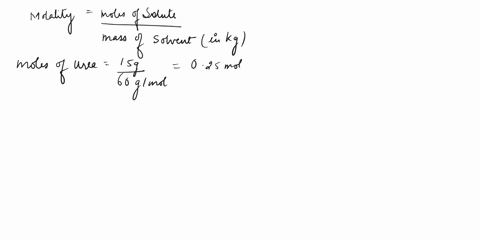 Molality = moles of Solute
mass of Solvent (in kg)
moles of Urea = 15g = 0.25 mol
60 g/mol